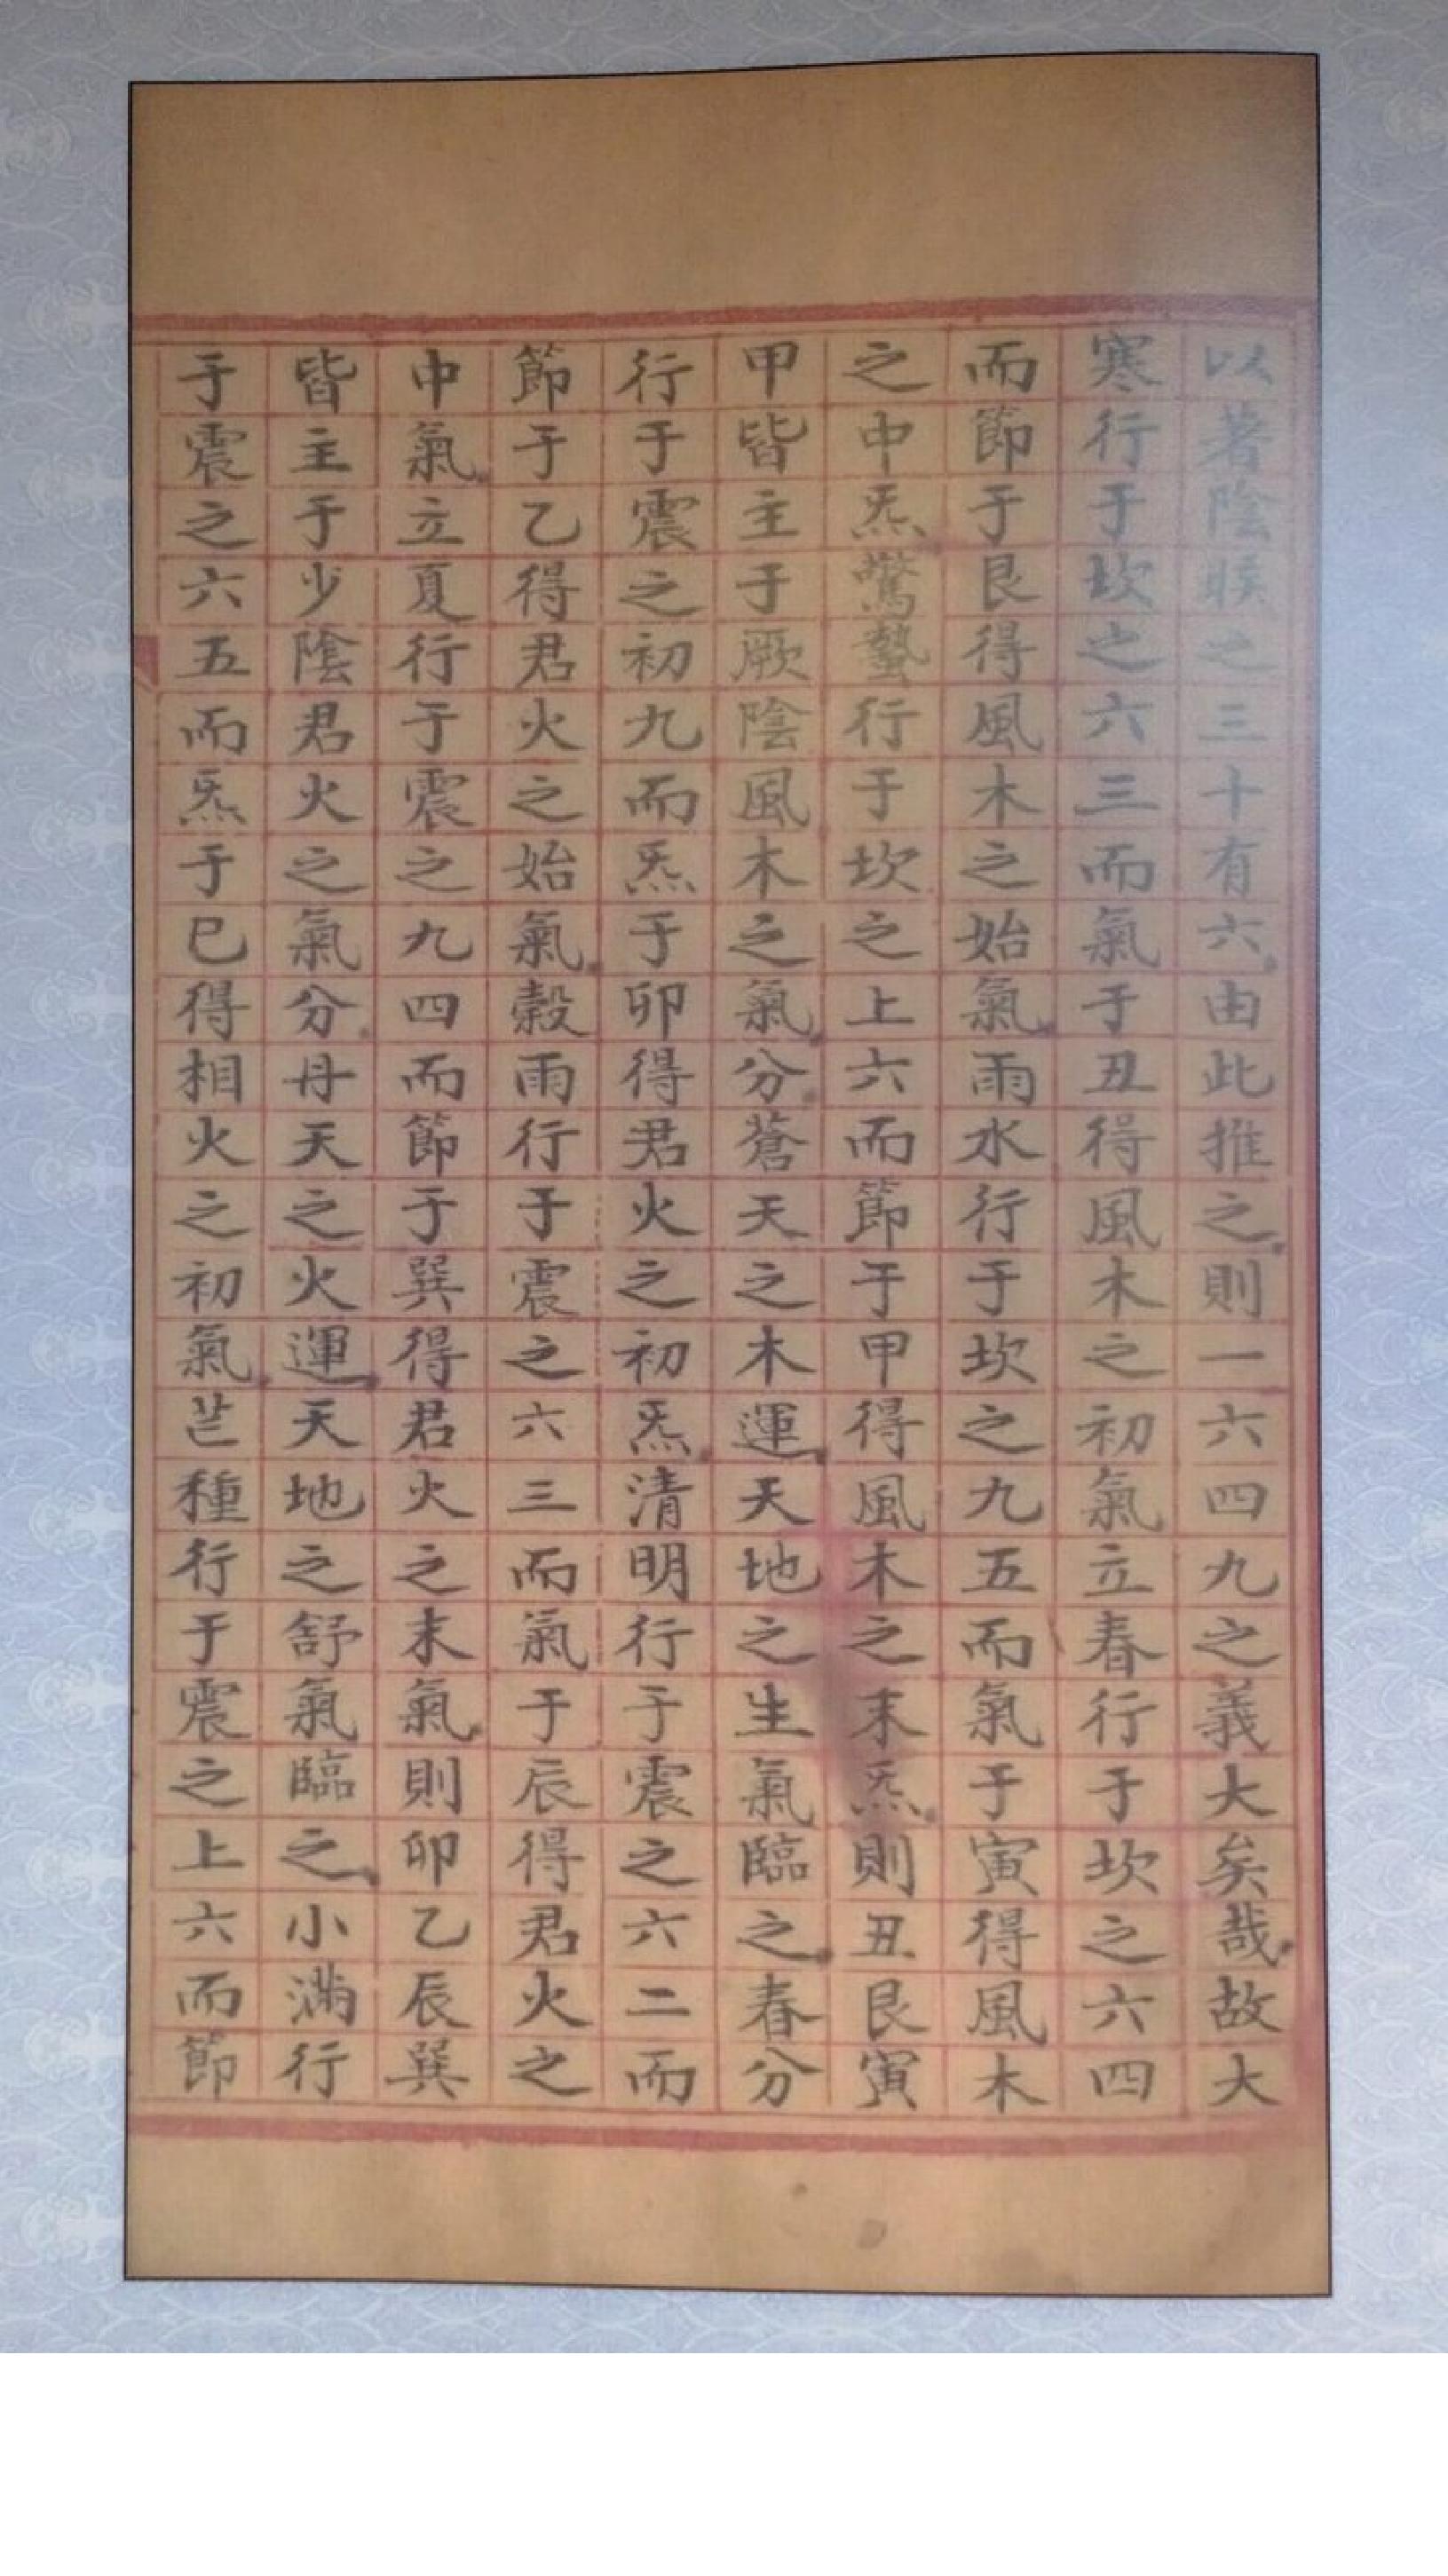 以著陰睺之三十有六。由此推之。則一六四九之義大矣哉。故大
寒行于坎之六三而氣于丑得風木之初氣立春行于坎之六四
而節于艮得風木之始氣。雨水行于坎之九五而氣于寅得風木
之中炁。驚蟄行于坎之上六而節于甲得風木之末炁。則丑艮寅
甲皆主于厥陰風木之氣。分。蒼天之木運。天地之生氣臨之。春分
行于震之初九而炁于卯得君火之初炁。清明行于震之六二而
節于乙得君火之始氣。榖雨行于震之六三而氣于辰得君火之
中氣。立夏行于震之九四而節于巽得君火之末氣。則卯乙辰巽
皆主于少陰君火之氣分。丹天之火運。天地之舒氣臨之。小滿行
于震之六五而炁于巳得相火之初氣。芒種行于震之上六而節